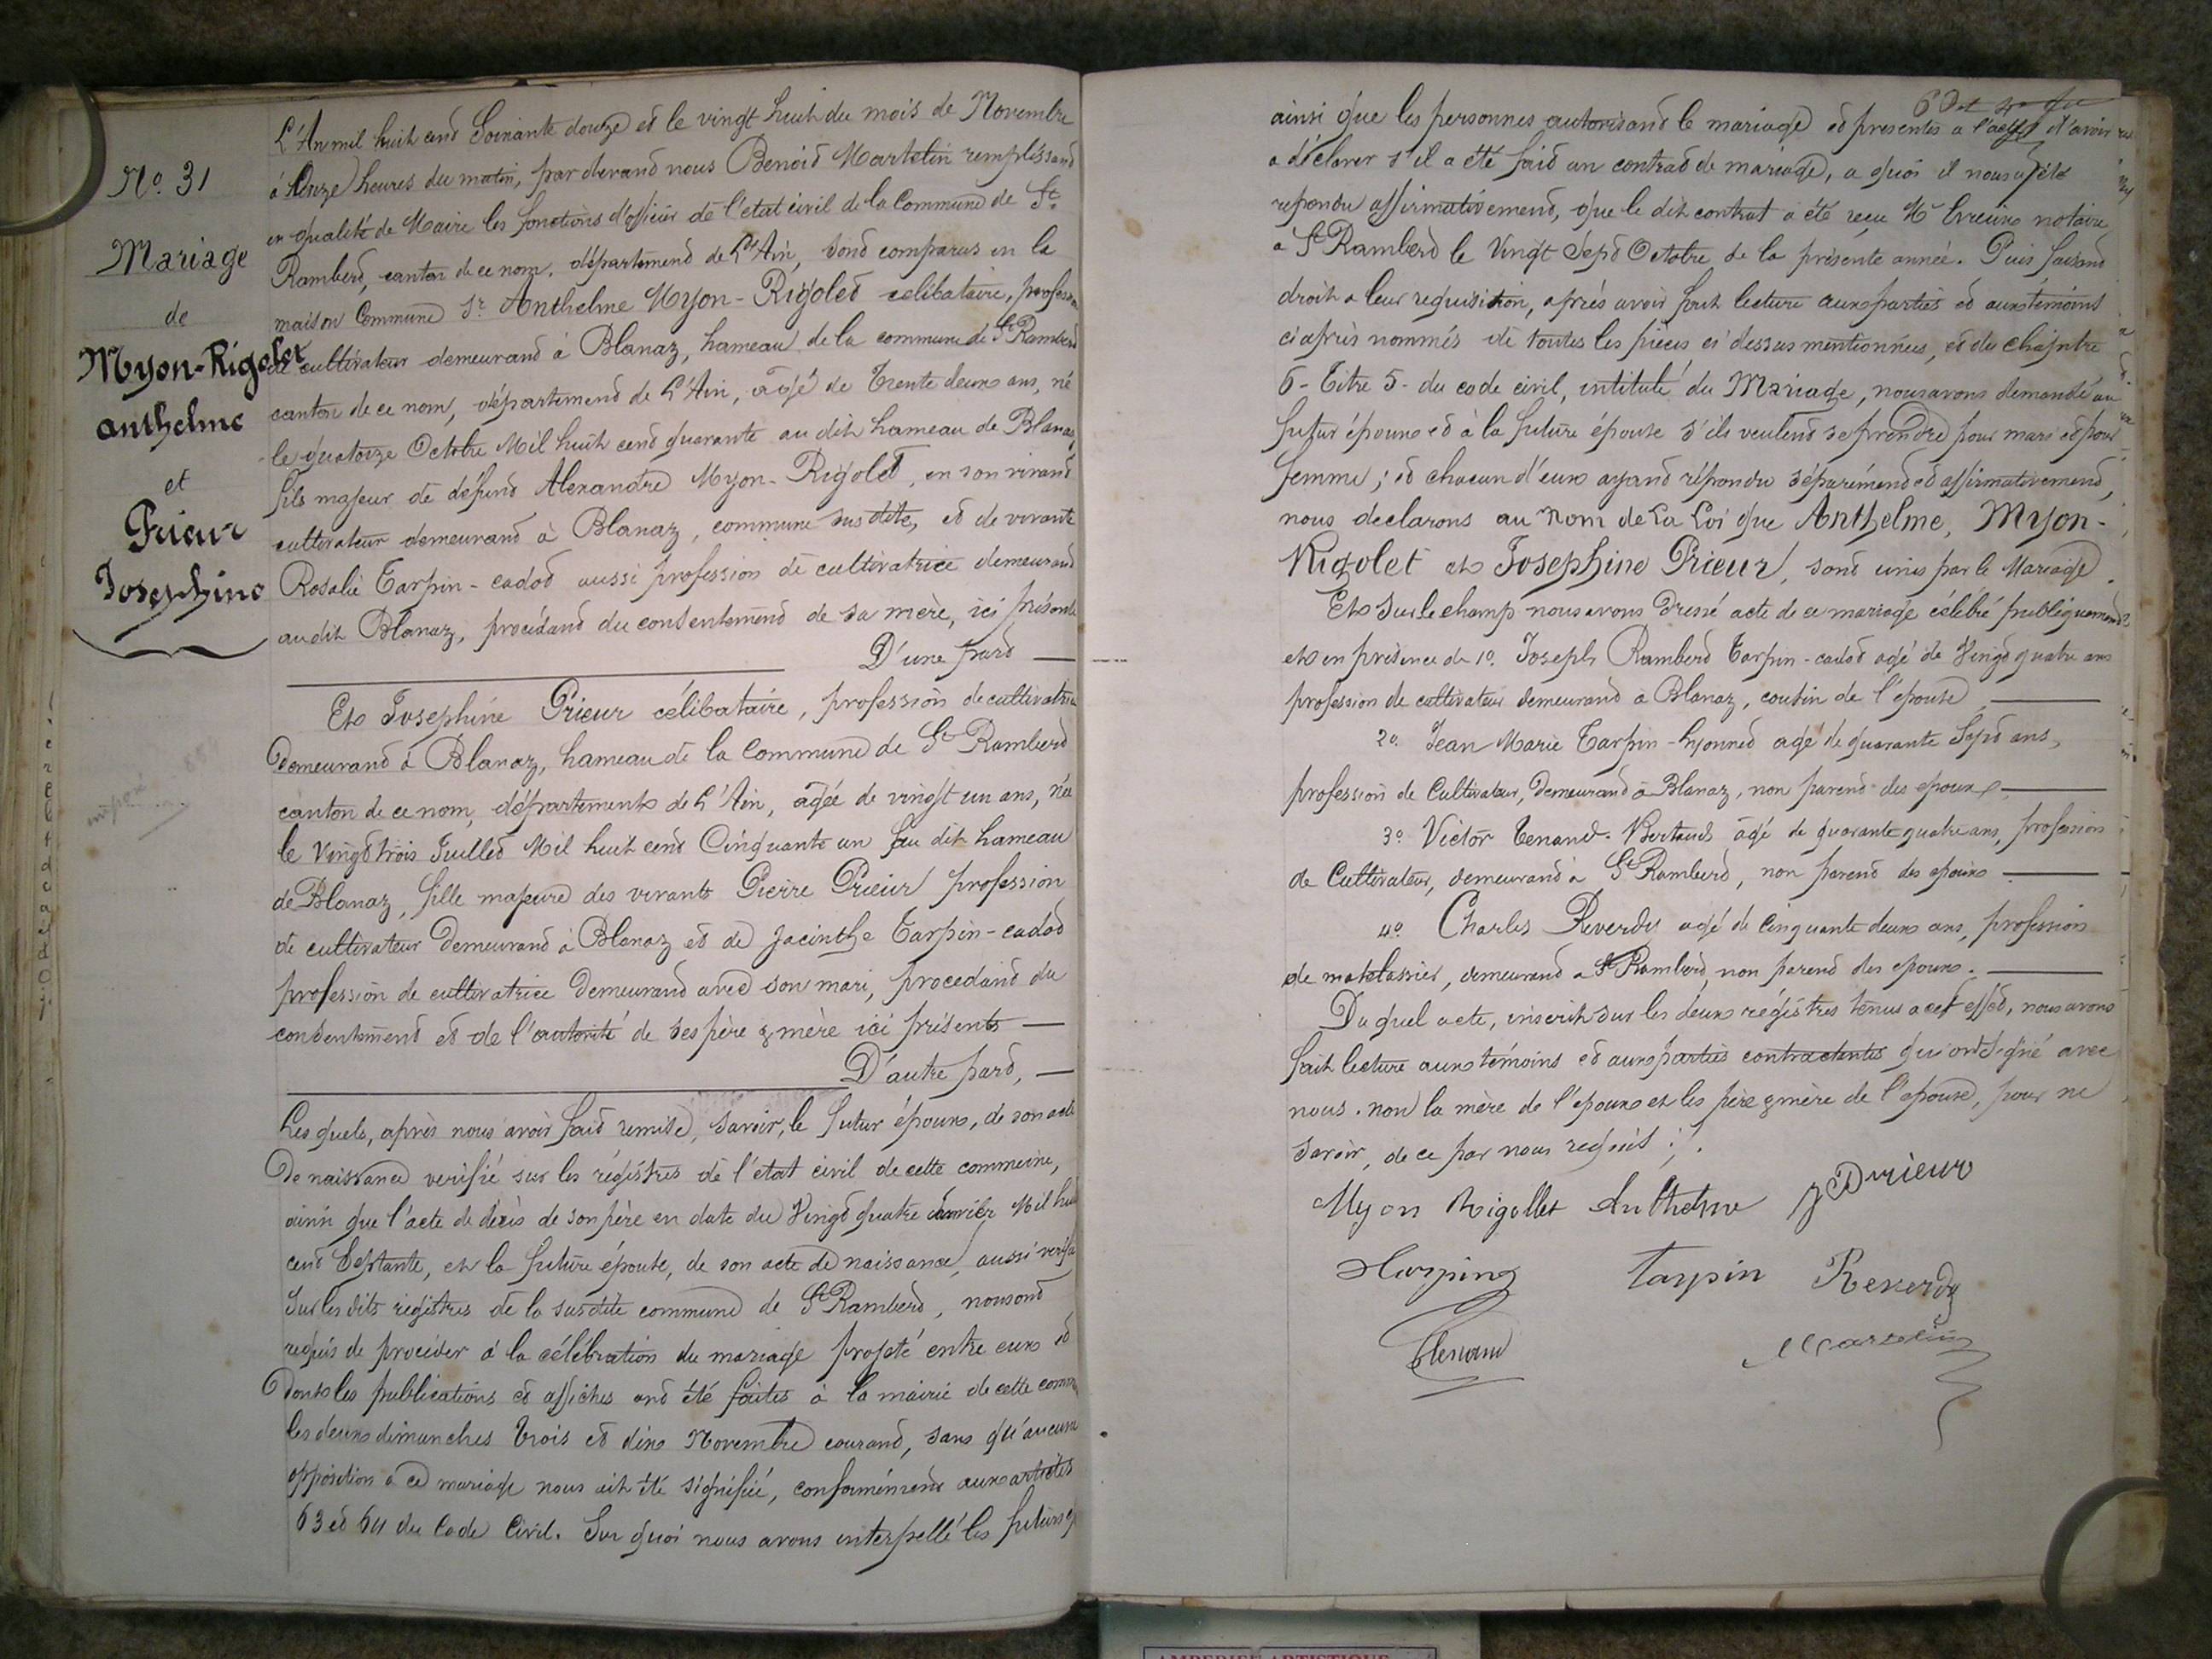 N.º 31
Mariage
de
Myon-Rigolet
anthelme
et
Prieur
Josephine
L'An mil huit cent Soixante douze et le vingt huit du mois de Novembre
à Onze heures du matin, par devant nous Benoit Martelin remplissant
en qualité de Maire les fonctions d'officier de l'etat civil de la Commune de St.
Rambert, canton de ce nom, département de L'Ain, sont comparus en la
maison Commune Sr. Anthelme Myon-Rigolet celibataire, profession
de cultivateur demeurant à Blanaz, hameau de la commune de St Rambert
canton de ce nom, département de L'Ain, agé de Trente deux ans, né
le quatorze Octobre Mil huit cent quarante au dit hameau de Blanaz,
fils majeur de défunt Alexandre Myon-Rigolet, en son vivant
cultivateur demeurant à Blanaz, commune sus dite, et de vivante
Rosalie Tarpin-cadot aussi profession de cultivatrice demeurant
au dit Blanaz, procédant du consentement de sa mère, ici présente
D'une part
Et Josephine Prieur célibataire, profession de cultivatrice
demeurant à Blanaz, hameau de la Commune de St Rambert
canton de ce nom, département de L'Ain, agée de vingt un ans, née
le Vingt trois Juillet Mil huit cent Cinquante un au dit hameau
de Blanaz, fille majeure des vivants Pierre Prieur profession
de cultivateur demeurant à Blanaz et de Jacinthe Tarpin-cadot
profession de cultivatrice demeurant avec son mari, procedant du
consentement et de l'autorité de ses père & mère ici présents
D'autre part,
Les quels, après nous avoir fait remise, savoir, le futur époux, de son acte
de naissance verifié sur les régistres de l'état civil de cette commune,
ainsi que l'acte de décès de son père en date du Vingt quatre Janvier Mil huit
cent Septante, et la future épouse, de son acte de naissance, aussi verifié
sur les dits registres de la susdite commune de St Rambert, nous ont
requis de procéder à la célébration du mariage projeté entre eux et
dont les publications et affiches ont été faites à la mairie de cette commune
les deux dimanches Trois et dix Novembre courant, sans qu'aucune
opposition à ce mariage nous ait été signifiée, conformément aux articles
63 et 64 du Code Civil. Sur quoi nous avons interpellé les futurs
ainsi que les personnes autorisant le mariage et presentes a l'acte d'avoir
a déclarer s'il a été fait un contrat de mariage, a quoi il nous a été
repondu affirmativement, que le dit contrat a été reçu Me notaire
a St Rambert le Vingt Sept Octobre de la présente année. Puis faisant
droit a leur requisition, après avoir fait lecture aux parties et aux témoins
ci après nommés de toutes les pièces ci dessus mentionnées, et du chapitre
6 - Titre 5 - du code civil, intitulé du Mariage, nous avons demandé au
futur époux et à la future épouse s'ils veulent se prendre pour mari et pour
femme; et chacun d'eux ayant répondu séparément et affirmativement,
nous declarons au Nom de La Loi que Anthelme, Myon-
Rigolet et Josephine Prieur, sont unis par le Mariage.
Et sur le champ nous avons dressé acte de ce mariage célébré publiquement
et en présence de 1º. Joseph Rambert Tarpin-cadot agé de Vingt quatre ans
profession de cultivateur demeurant à Blanaz, cousin de l'epouse
2º. Jean Marie Tarpin-lyonnet agé de quarante Sept ans,
profession de Cultivateur, demeurant à Blanaz, non parent des epoux
3º. Victor Tenand-Bertaud agé de quarante quatre ans, profession
de Cultivateur, demeurant à St Rambert, non parent des époux
4º. Charles Reverdy agé de Cinquante deux ans, profession
de matelassier, demeurant a St Rambert, non parent des epoux.
Du quel acte, inscrit sur les deux régistres tenus a cet effet, nous avons
fait lecture aux témoins et aux parties contractantes qui ont signé avec
nous. non la mère de l'epoux et les père & mère de l'épouse, pour ne
savoir, de ce par nous requis
Myon Rigollet Anthelme J Prieur
Tarpin Reverdy
Tenand Martelin